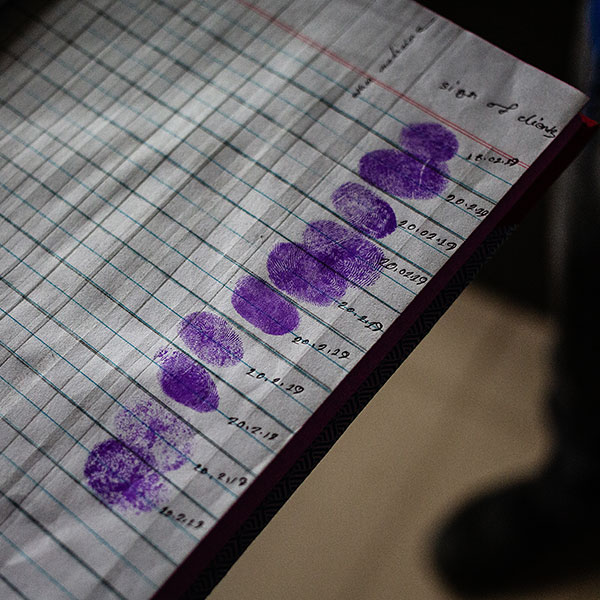 sign of clients
18.02.19
20.2.19
20.02.19
20.02.19
20.2.19
20.2.19
20.2.19
20.2.19
20.2.19
20.2.19